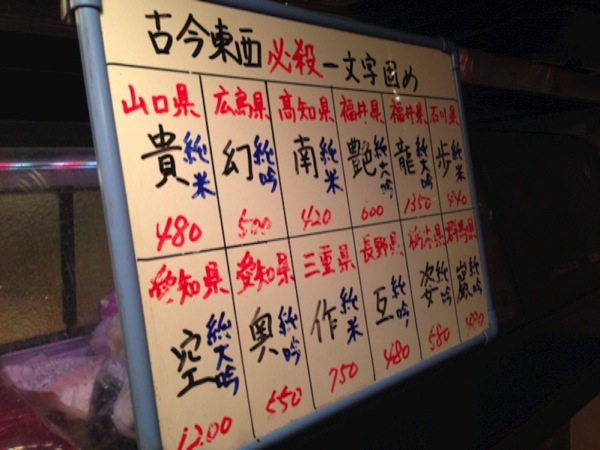 古今東西必殺一文字固め
山口県 広島県 高知県 福井県 福井県 石川県
貴 純米 幻 純吟 南 純米 艶 純大吟 龍 純大吟 歩 純米
480 500 420 600 1350 440
愛知県 愛知県 三重県 長野県 栃木県 群馬県
空 純大吟 奥 純吟 作 純米 互 純吟 姿 純吟 巖 純吟
1200 550 750 480 580